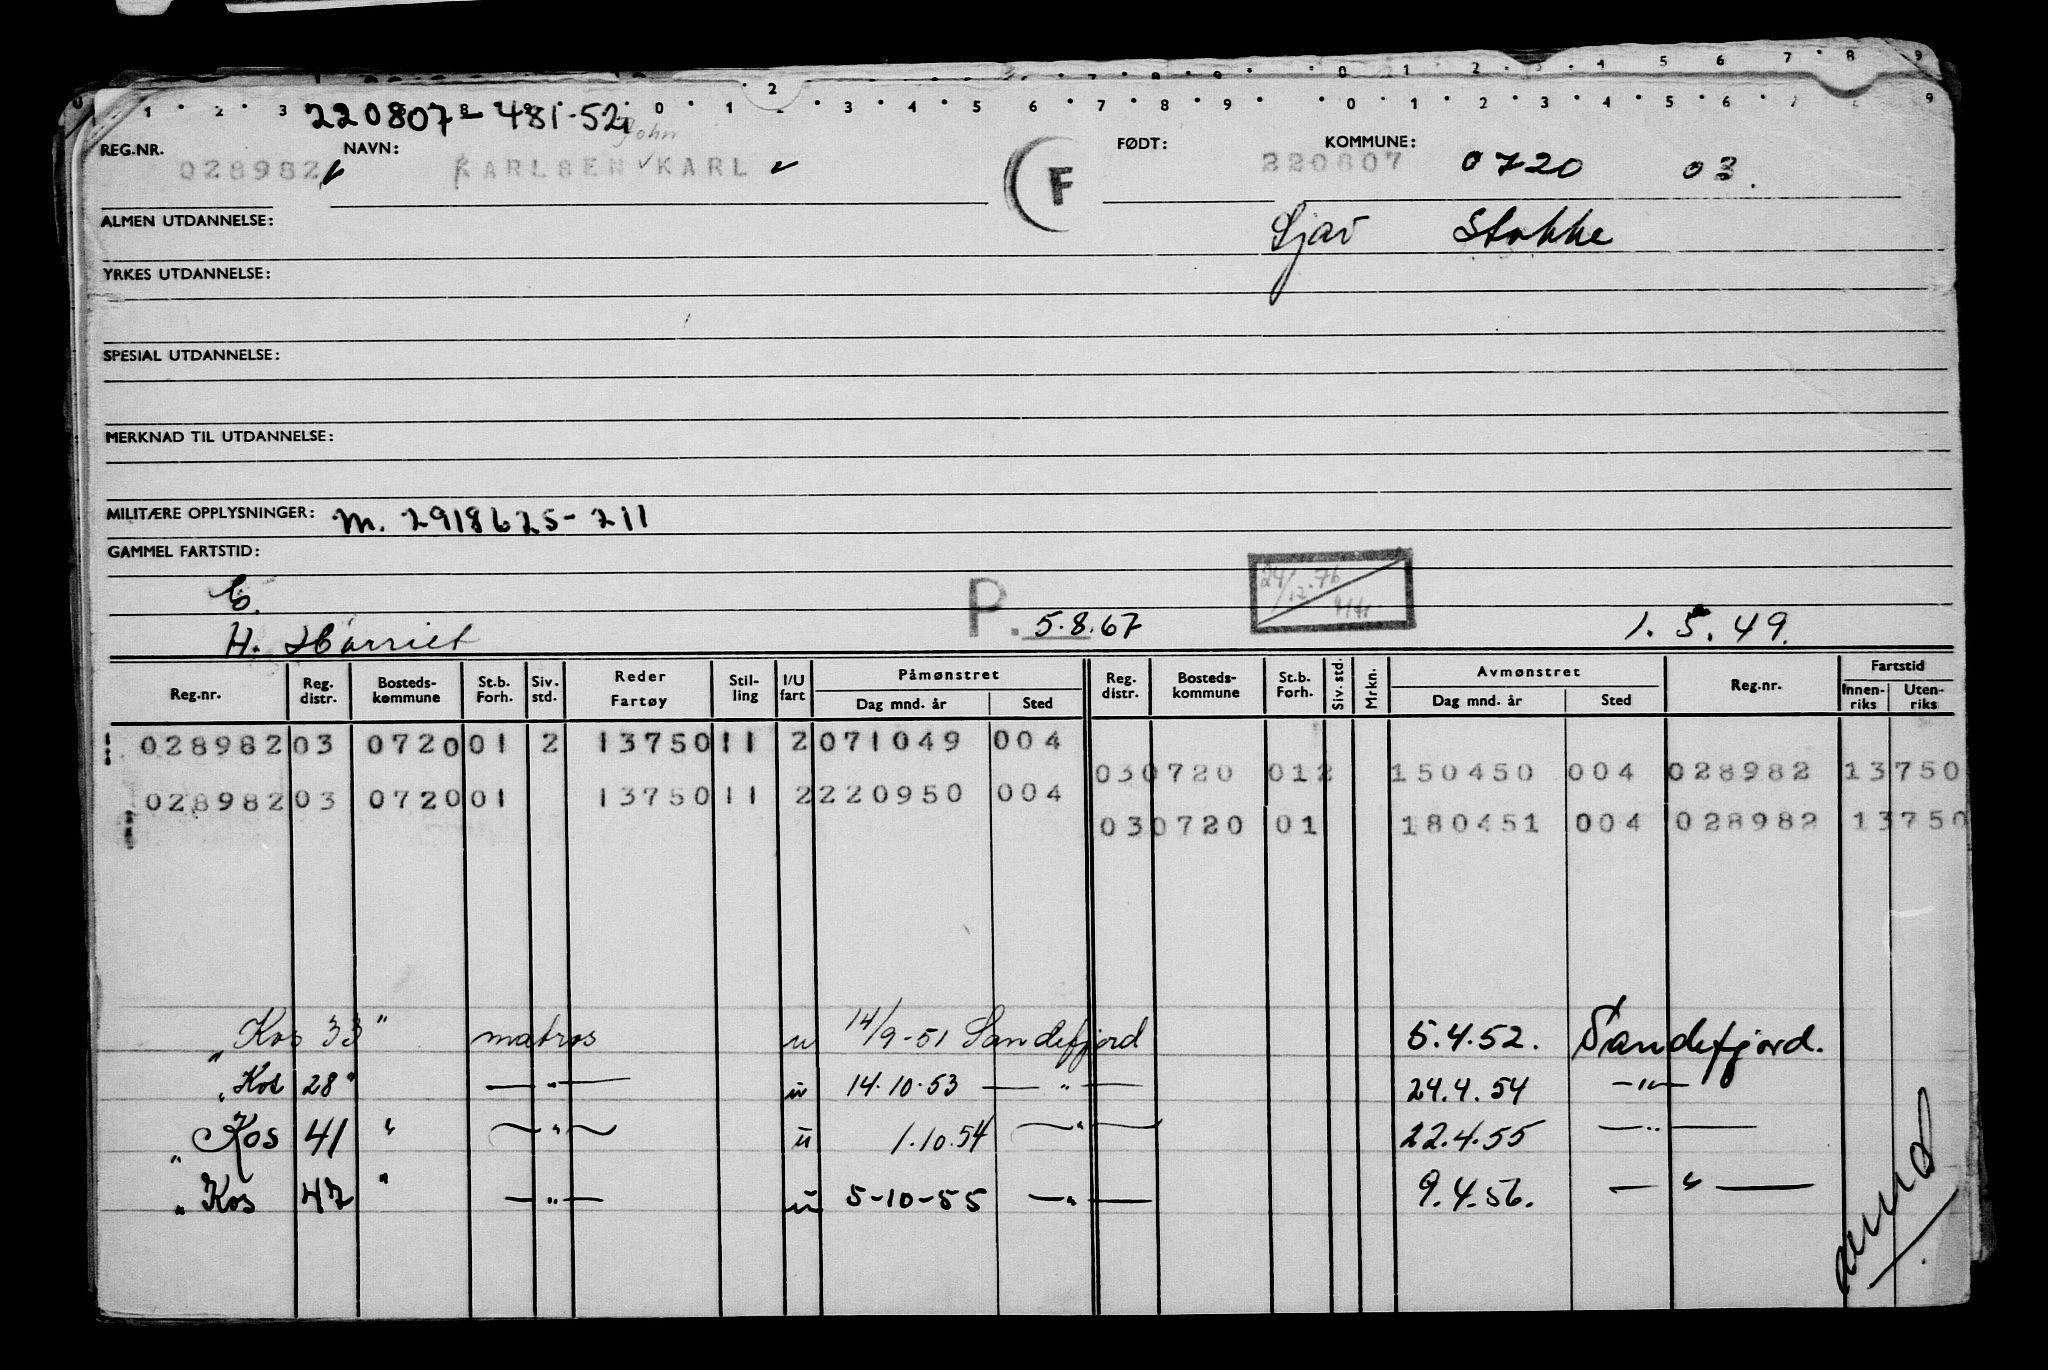 220807 - 481.52
John
REG.NR. NAVN: FØDT: KOMMUNE:
028982 KARLSEN KARL F 220807 0720 03.
ALMEN UTDANNELSE: Stokke
YRKES UTDANNELSE:
SPESIAL UTDANNELSE:
MERKNAD TIL UTDANNELSE:
MILITÆRE OPPLYSNINGER: M. 2918625-211
GAMMEL FARTSTID:
E. P. 5.8.67 24/12.76 1.5.49.
H. Harriet
Reg.nr. Reg. distr. Bosteds-kommune St.b. Forh. Siv. std. Reder Fartøy Stil-ling I/U fart Påmønstret Dag mnd. år Sted Reg. distr. Bosteds-kommune St.b. Forh. Siv. std. Mrkn. Avmønstret Dag mnd. år Sted Reg.nr. Fartstid Innen-riks Uten-riks
028982 03 0720 01 2 13750 11 2 071049 004
030720 012 150450 004 028982 13750
028982 03 0720 01 13750 11 2 220950 004
030720 01 180451 004 028982 13750
"Kos 33" matros u 14/9-51 Sandefjord 5.4.52. Sandefjord.
"Kos 28" — " — u 14.10.53 — " — 24.4.54 — " —
"Kos 41" — " — u 1.10.54 — " — 22.4.55 — " —
"Kos 47" — " — u 5-10-55 — " — 9.4.56. — " —